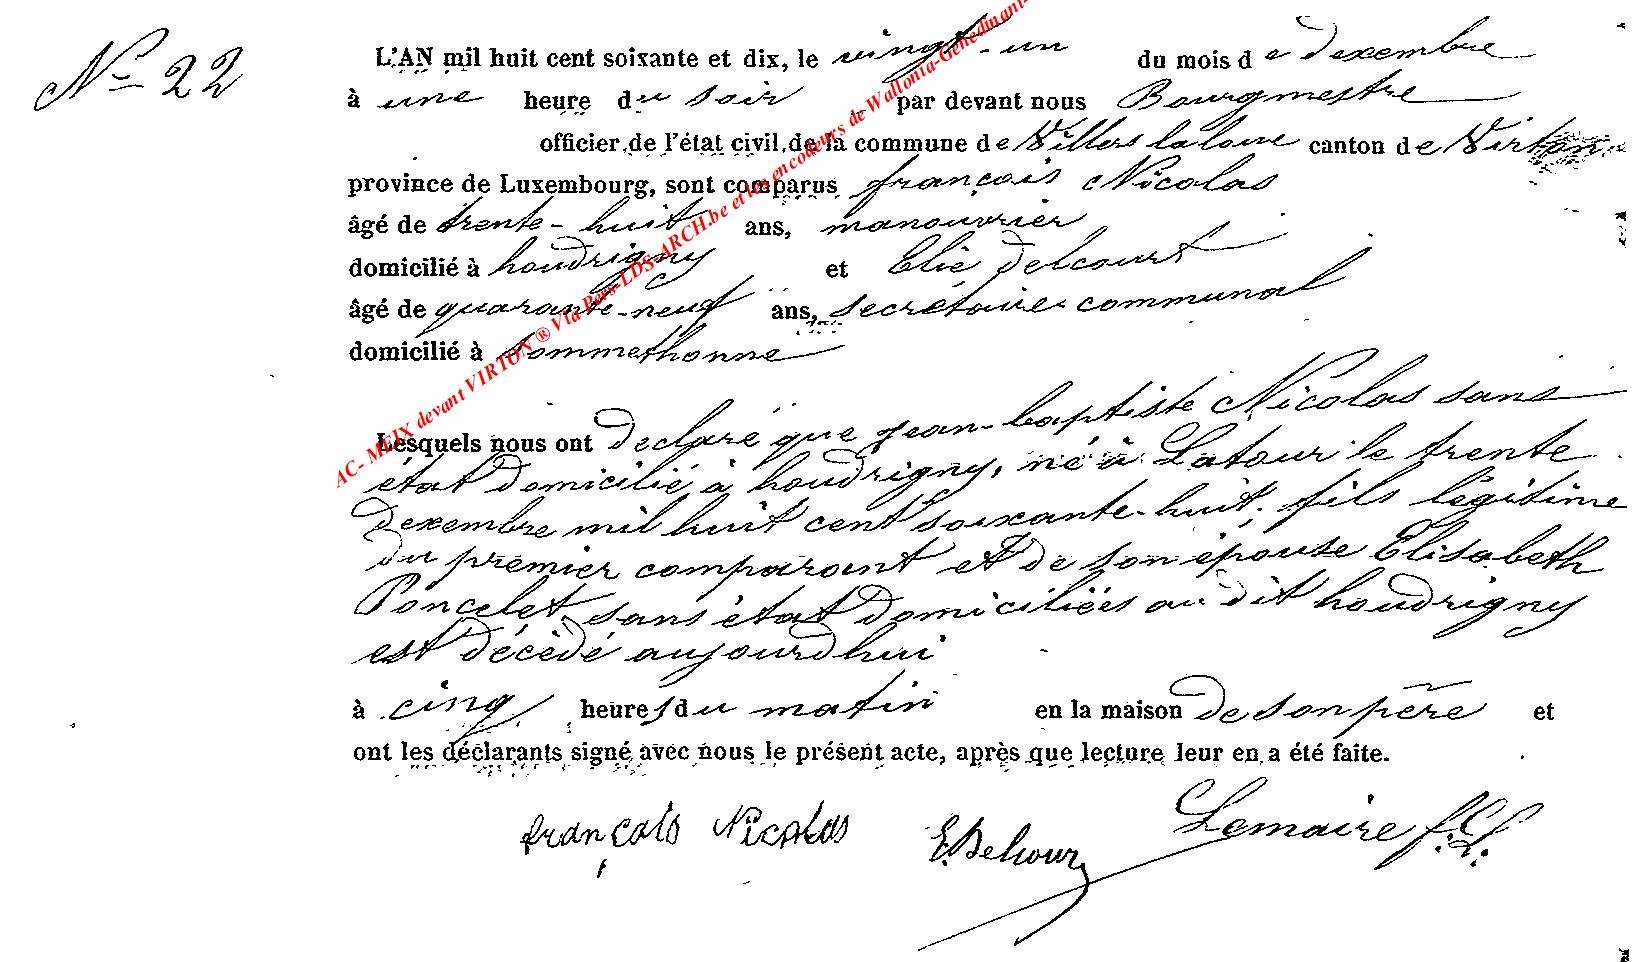 N° 22
L'AN mil huit cent soixante et dix, le vingt-un du mois de dexembre
à une heure du soir par devant nous Bourgmestre
officier de l'état civil de la commune de Villers laloue canton de Virton
province de Luxembourg, sont comparus françois Nicolas
âgé de trente-huit ans, manouvrier
domicilié à houdrigny et Elie Delcourt
âgé de quarante-neuf ans, secrétaire communal
domicilié à Sommethonne
Lesquels nous ont déclaré que jean-baptiste Nicolas sans
état domicilié à houdrigny, né à Latour le trente
dexembre mil huit cent soixante-huit, fils légitime
du premier comparant et de son épouse Elisabeth
Poncelet, sans état domiciliées au dit houdrigny
est décédé aujourdhui
à cinq heures du matin en la maison de son père et
ont les déclarants signé avec nous le présent acte, après que lecture leur en a été faite.
françois Nicolas E. Delcour Lemaire f.f.
AC- MEIX devant VIRTON ® Via Pers-LDS-ARCH.be et les encodeurs de Wallonia-Genedinant-